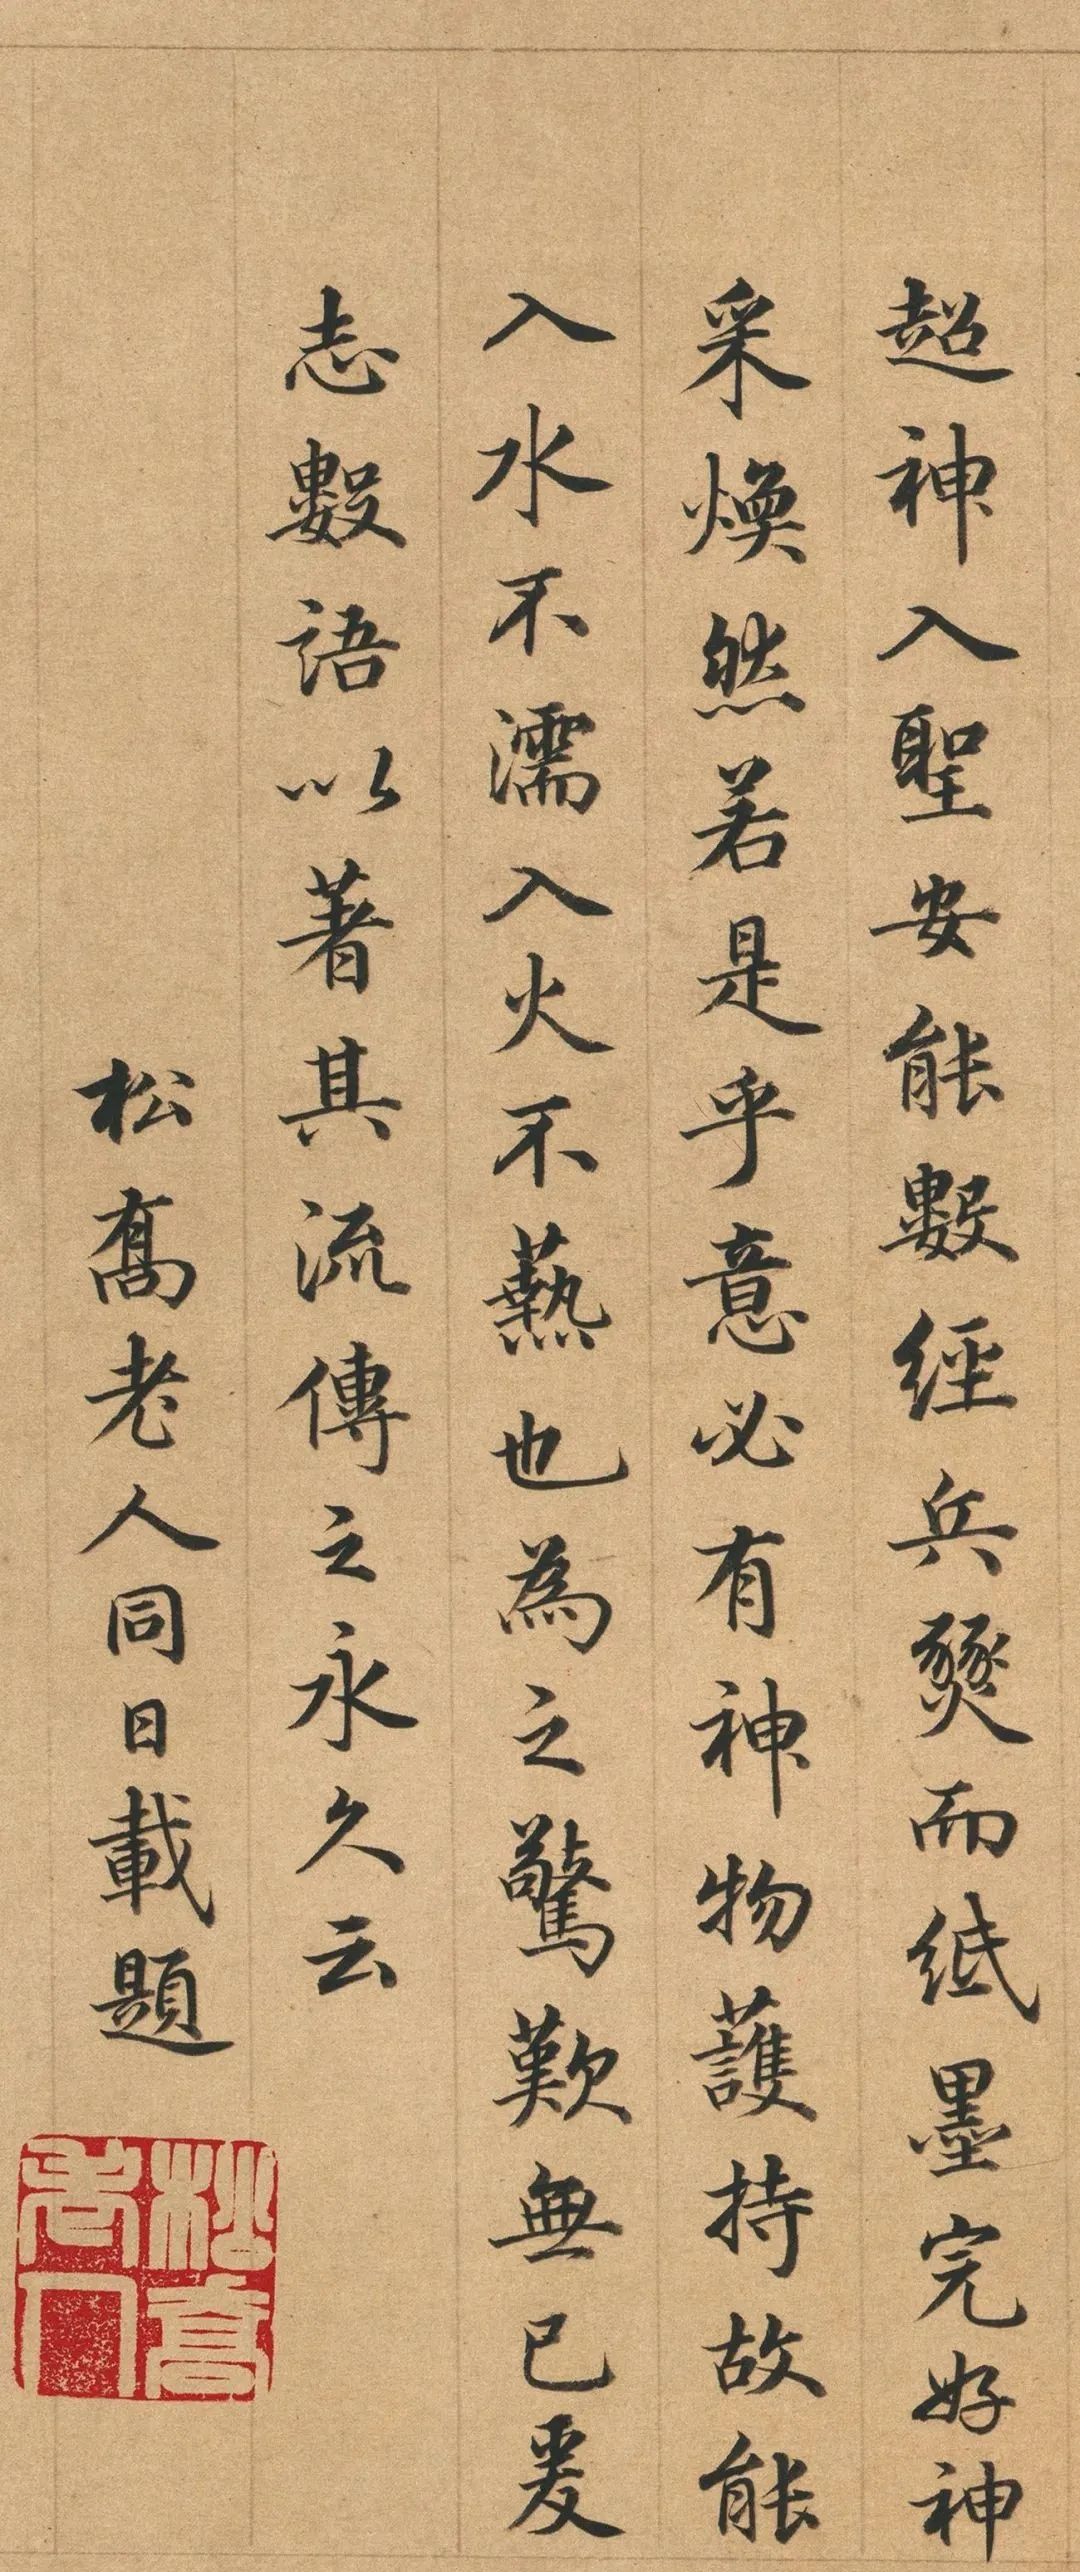 超神入聖安能數經兵燹而紙墨完好神
采煥然若是乎意必有神物護持故能
入水不濡入火不爇也為之驚歎無已爰
志數語以著其流傳之永久云
松高老人同日載題